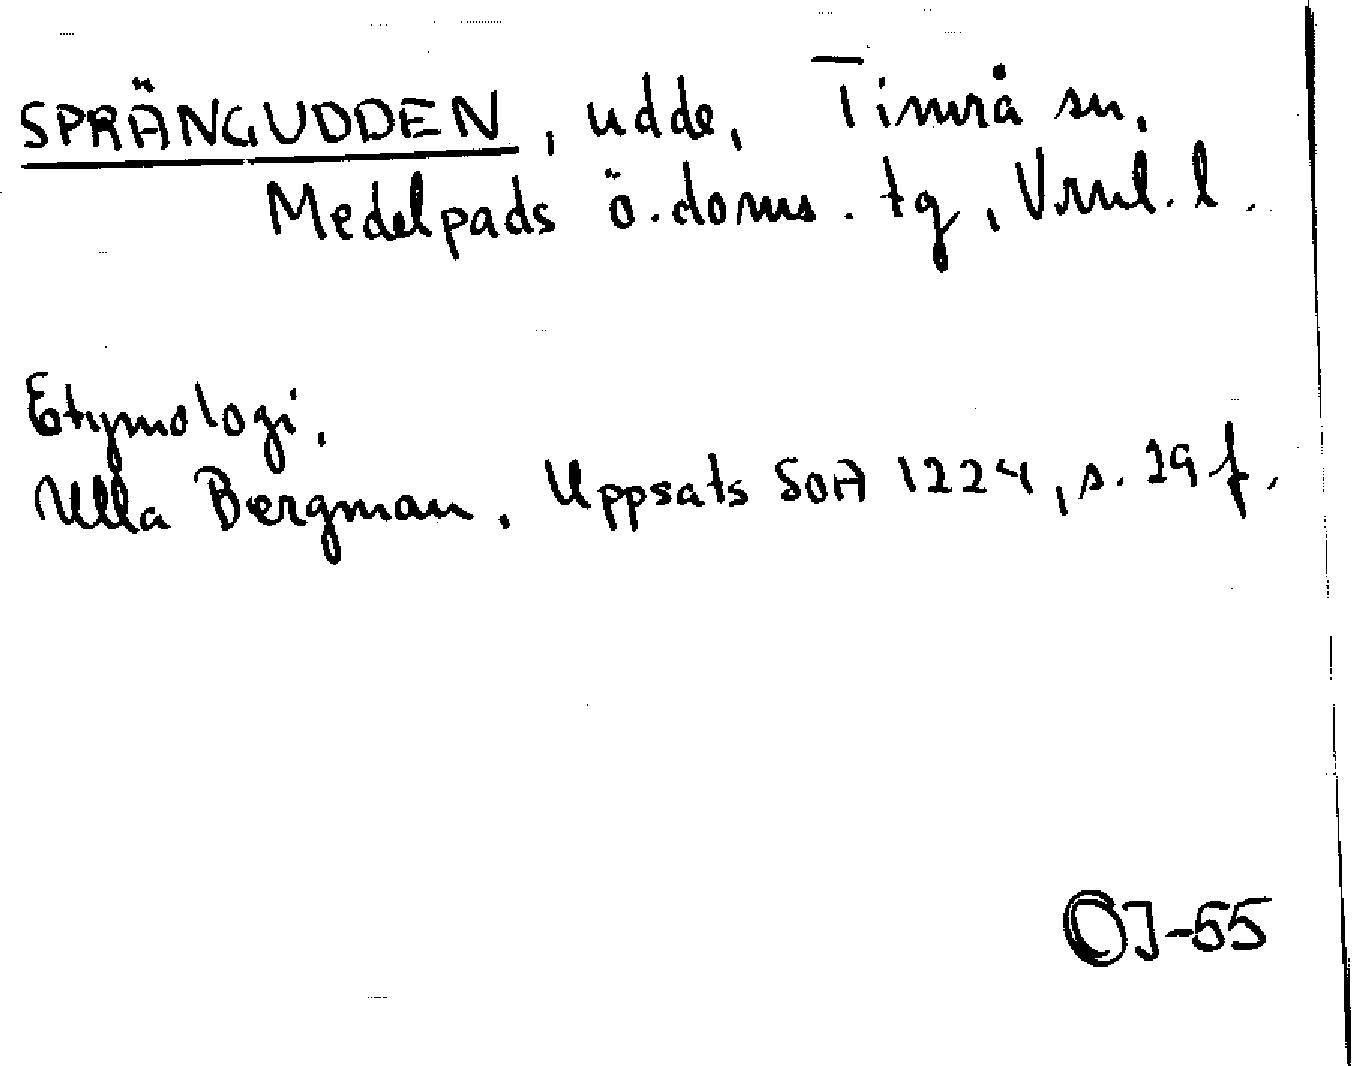 SPRÄNGUDDEN, udde, Timrå sn,
Medelpads ö. doms. tg, Vrnl. l.
Etymologi.
Ulla Bergman. Uppsats SOA 1224, s. 29 f.
OJ-55